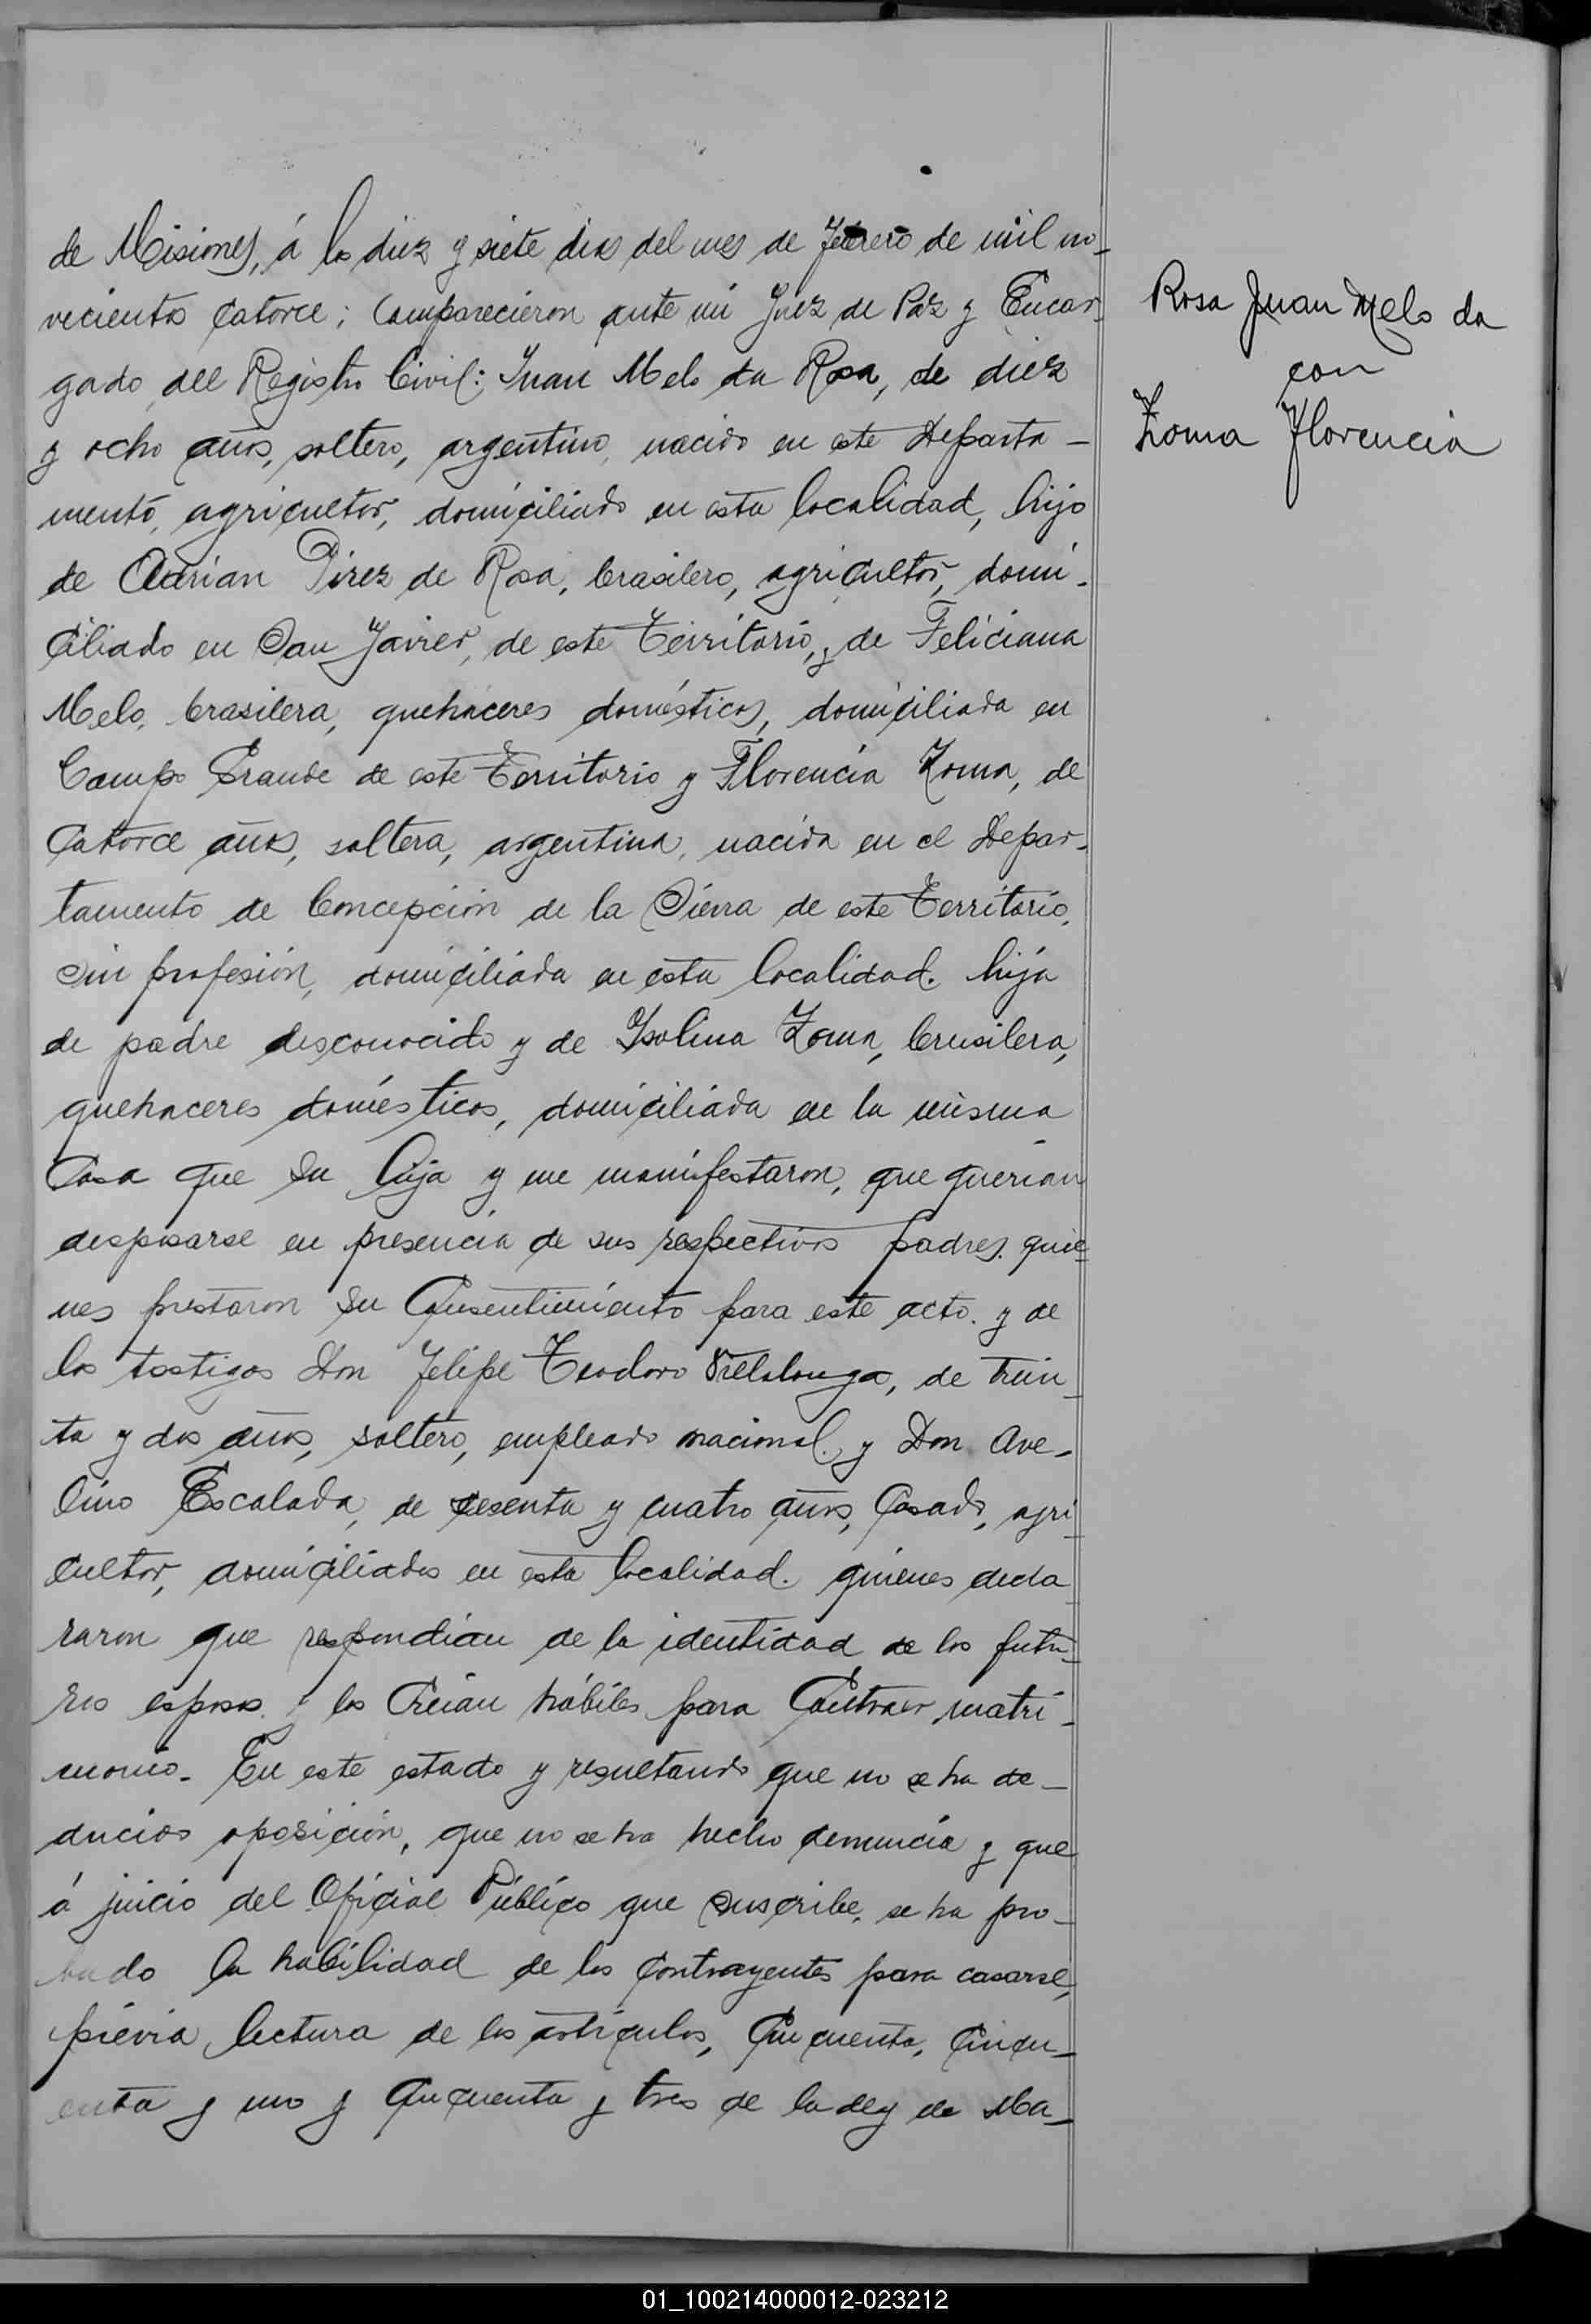 de Misiones, á los diez y siete dias del mes de Febrero de mil no-
vecientos catorce; Comparecieron ante mi Juez de Paz y Encar-
gado del Registro Civil: Juan Melo da Rosa, de diez
y ocho años, soltero, argentino, nacido en este Departa-
mento, agricultor, domiciliado en esta localidad, hijo
de Adrian Pirez de Rosa, brasilero, agricultor, domi-
ciliado en San Javier, de este Territorio, y de Feliciana
Melo, brasilera, quehaceres domésticos, domiciliada en
Campo Grande de este Territorio y Florencia Zoma, de
catorce años, soltera, argentina, nacida en el Depar-
tamento de Concepción de la Sierra de este Territorio,
sin profesión, domiciliada en esta localidad. hija
de padre desconocido y de Ysolina Zoma, brasilera,
quehaceres domésticos, domiciliada en la misma
Casa que su hija y me manifestaron, que querian
desposarse en presencia de sus respectivos padres. quie-
nes prestaron su Consentimiento para este acto. y de
los testigos Don Felipe Teodoro Villalonga, de trein-
ta y dos años, soltero, empleado nacional. y Don Ave-
lino Escalada, de sesenta y cuatro años, Casado, agri-
cultor, domiciliados en esta localidad. quienes decla
raron que respondian de la identidad de los futu-
ros esposos y los Creian hábiles para Contraer matri-
monio. En este estado y resultando que no se ha de-
ducido oposición, que no se ha hecho denuncia y que
á juicio del Oficial Público que suscribe, se ha pro-
bado la habilidad de los contrayentes para casarse,
prévia lectura de los artículos, Cincuenta, Cincu-
enta y uno y Cincuenta y tres de la ley de Ma-
Rosa Juan Melo da
con
Zoma Florencia
01_100214000012-023212